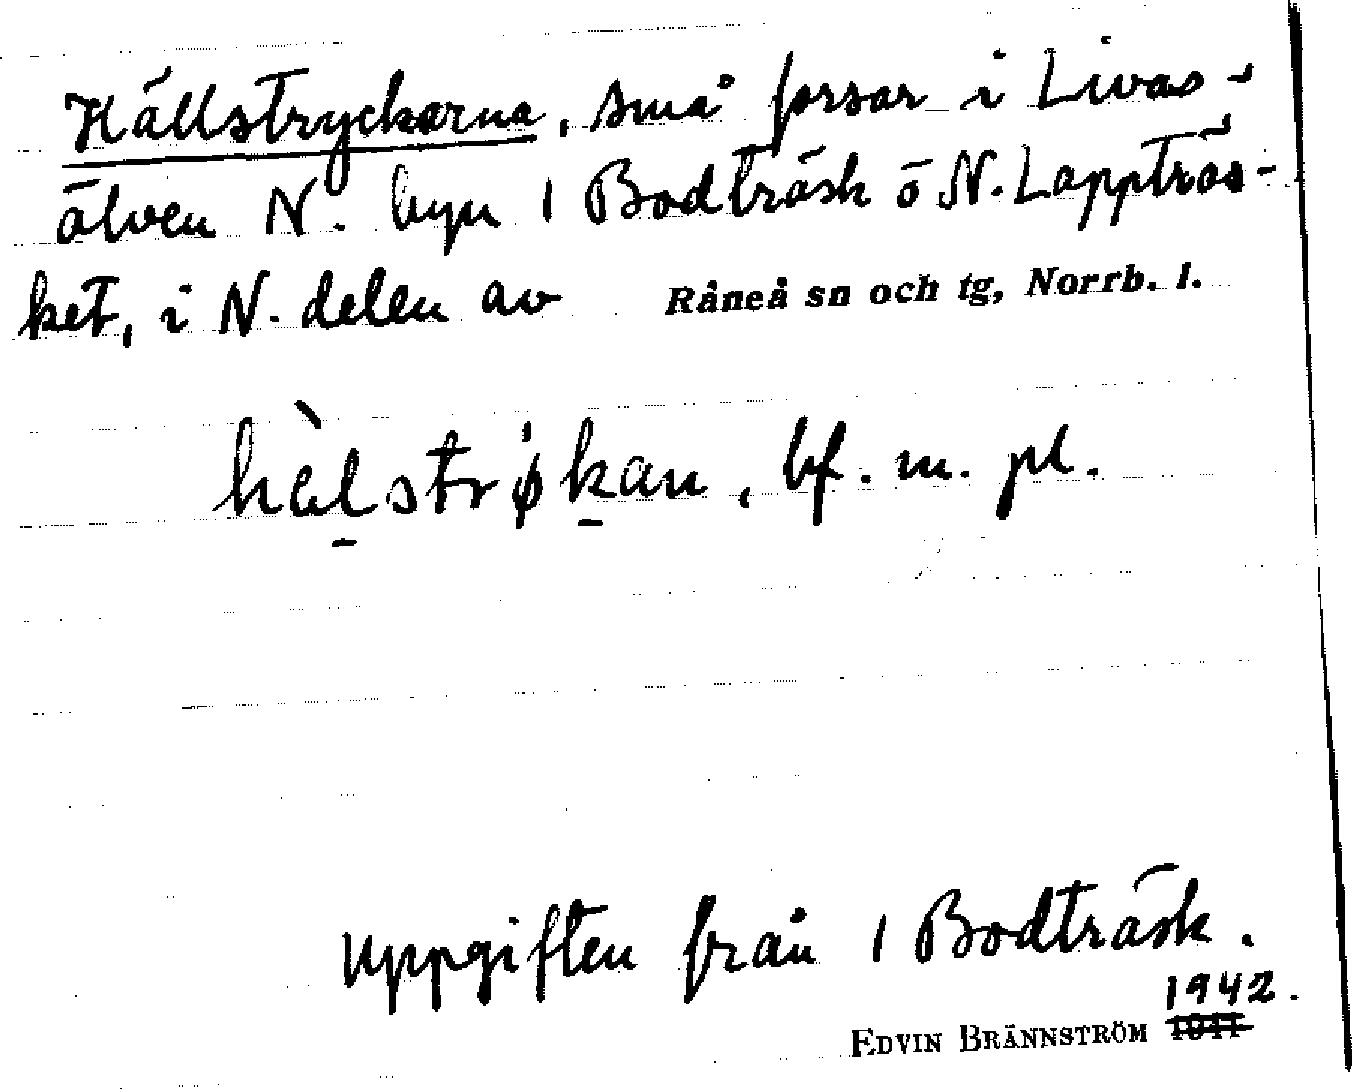 Hällstryckorna, små forsar i Livas-
älven N. byn 1 Bodträsk ö N. Lappträs-
ket, i N. delen av Råneå sn och tg, Norrb. l.
hàlstrøkan, bf. m. pl.
Uppgiften från 1 Bodträsk.
1942.
EDVIN BRÄNNSTRÖM 1941